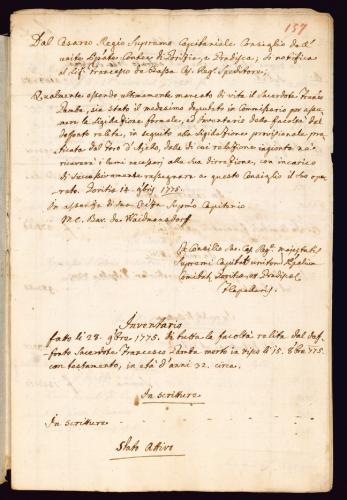 157
Dal Cesareo Regio Supremo Capitaniale Consiglio dell'
unito Contee di Gorizia, e Gradisca; Si notifica
al Sig. Francesco de Grassa Ces. Reg. Speditore.
Qualmente essendo ultimamente mancato di vita il Sacerdote Franc.
Panta, sia stato il medesimo deputato in Commissario per assu-
mere la Sigillatione formale, ed Inventario della facoltà del
Defonto relitta, in seguito alla Sigillatione provisionale pra-
ticata dal Foro d'Ajello, dalla di cui relatione ingionta ne
ricaverà i lumi necessari alla sua direttione, con incarico
di successivamente rassegnare a questo Consiglio il suo ope-
rato. Gorizia 18. 9bris 1775.
In absentia di Sua Supmo Capitanio
M. C. Bar. de Waidmansdorf
Ex Consilio Sac. Caes. Reg. Majestatis
Supremi Capitat. unitor.
Comitat. Goritiae et Gradiscae
Inventario
fatto li 28. 9bre 1775. di tutta la facoltà relitta dal Def-
fonto Sacerdote Francesco Panta morto in li 15. 8bre 775.
con testamento, in età d'anni 32. circa.
In scritture
In scritture
Stato Attivo